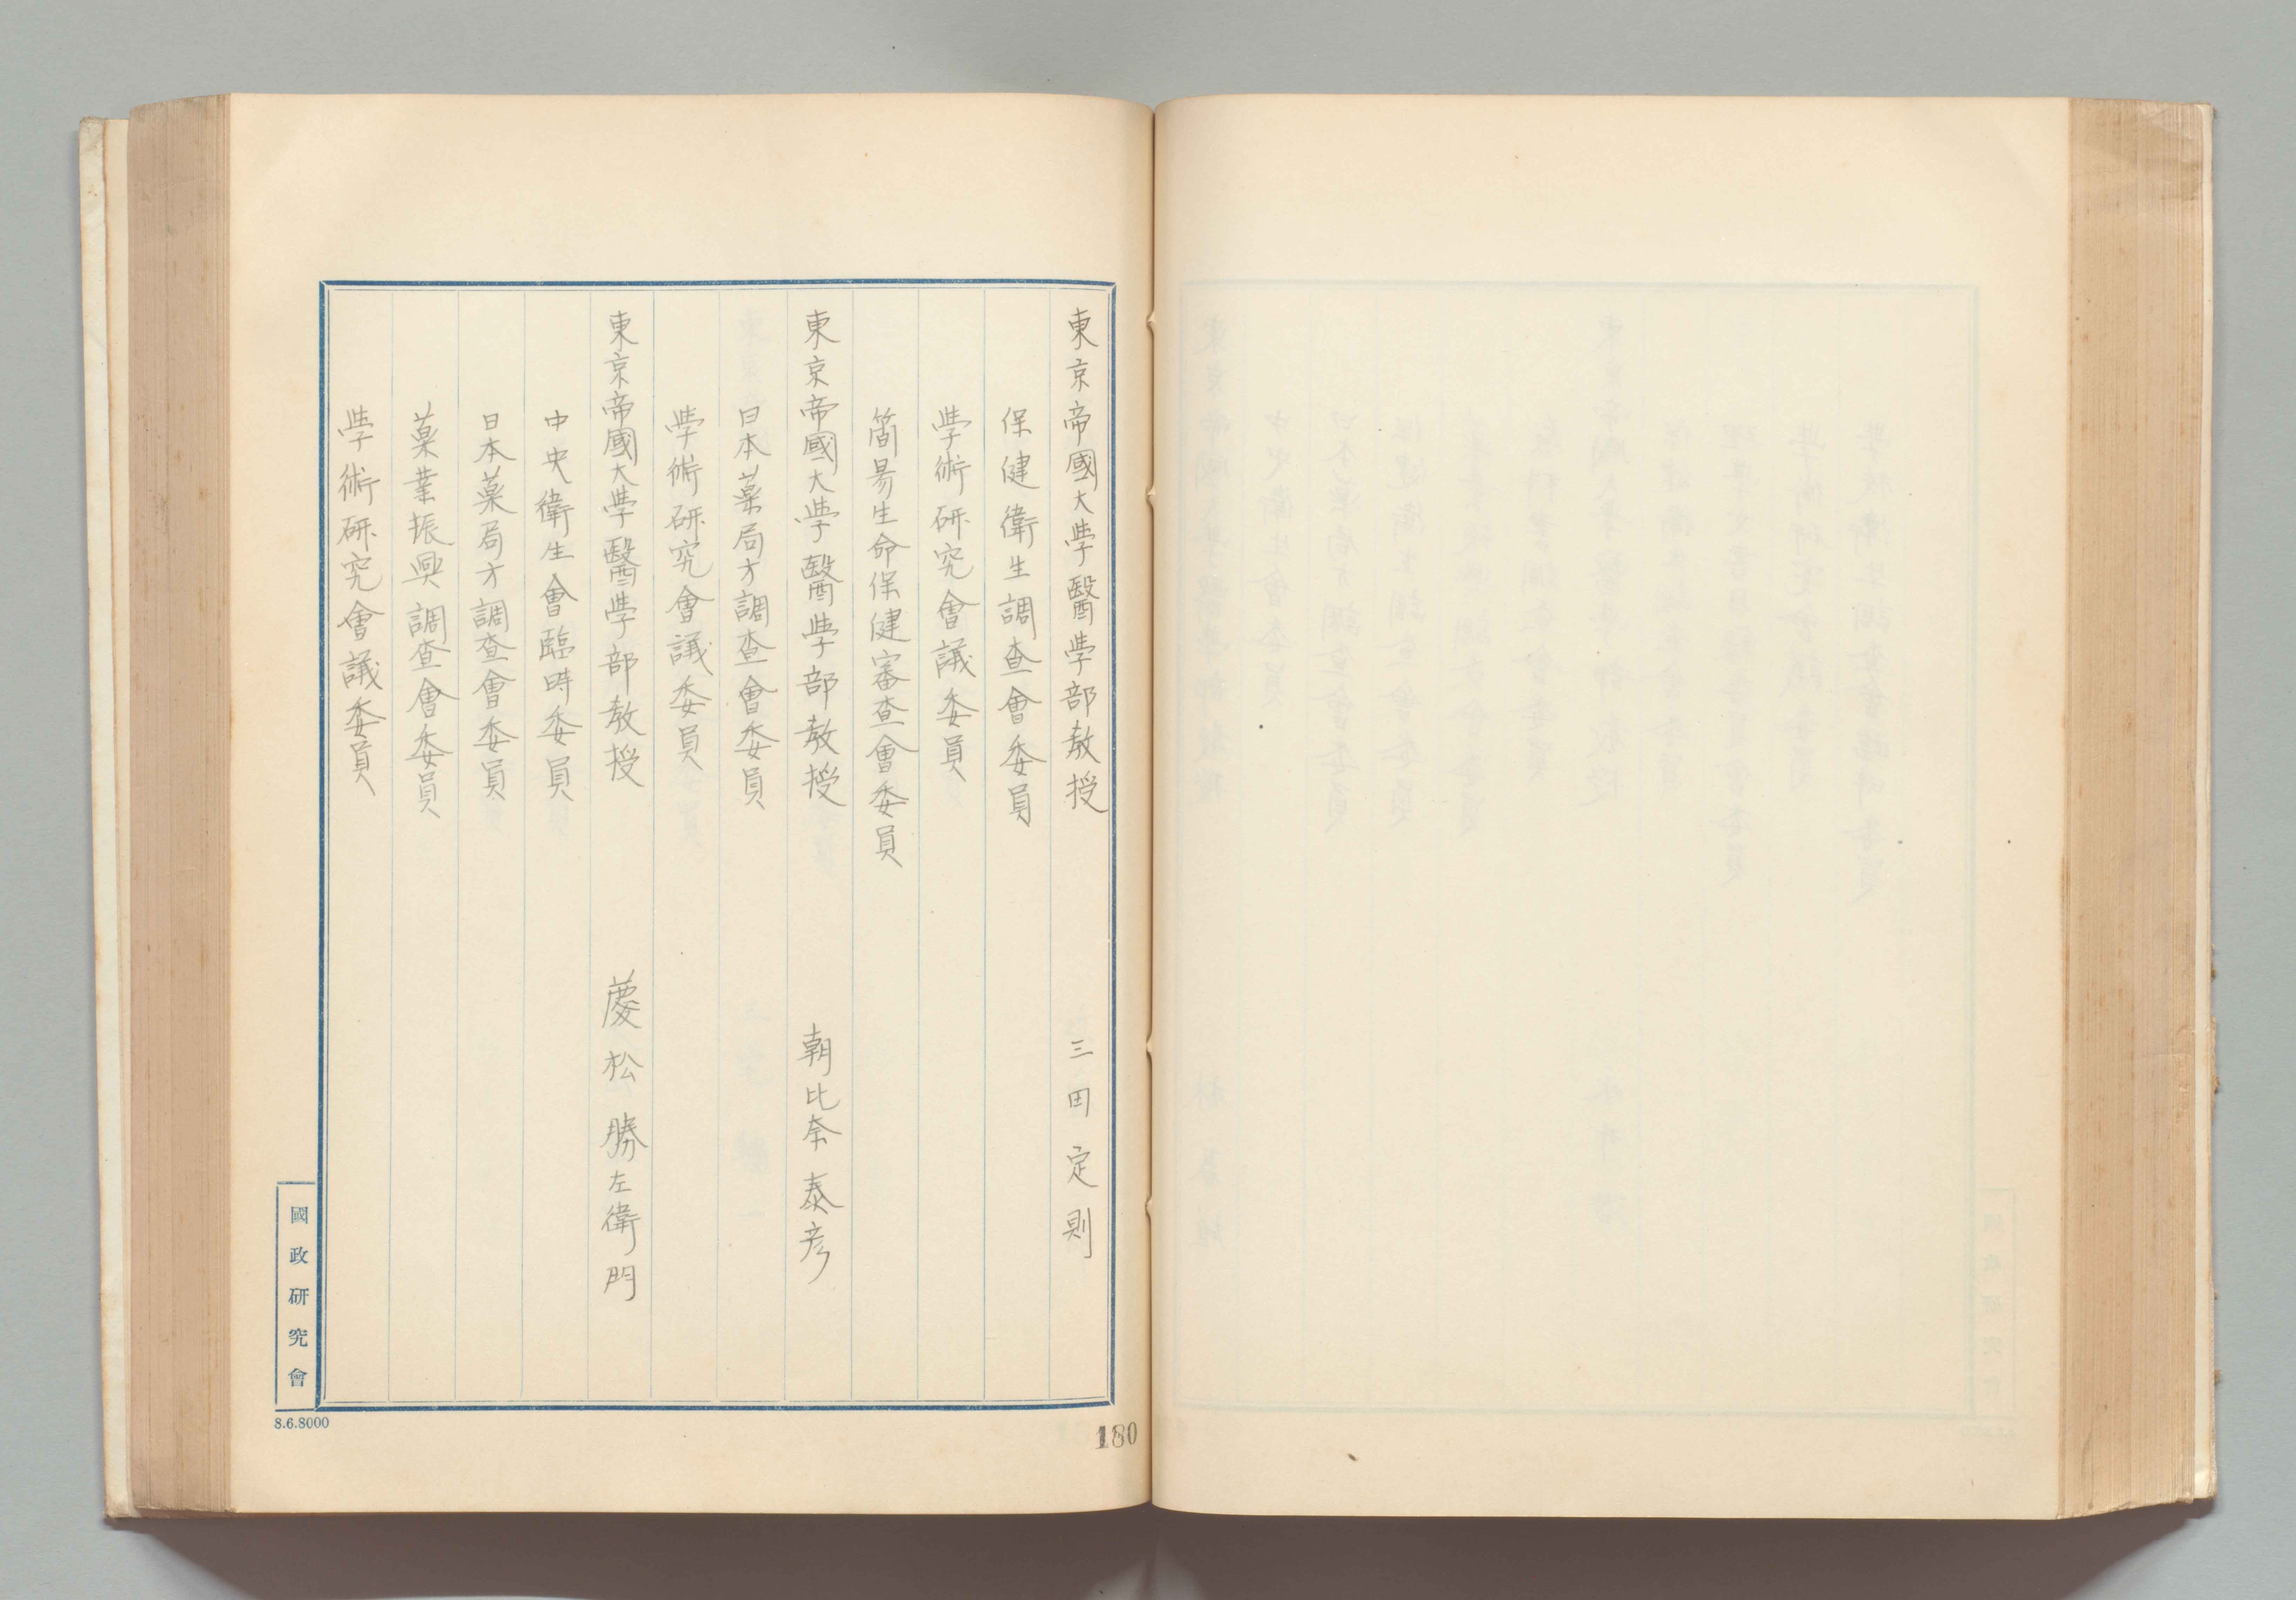 東京帝國大學醫學部教授 三田定則
保健衛生調查會委員
學術研究會議委員
簡易生命保健審查會委員
東京帝國大學醫學部教授 朝比奈泰彦
日本藥局方調查會委員
學術研究會議委員
東京帝國大學醫學部教授 慶松勝左衛門
中央衛生會臨時委員
日本藥局方調查會委員
藥業振興調查會委員
學術研究會議委員
國政研究會
8.6.8000
180